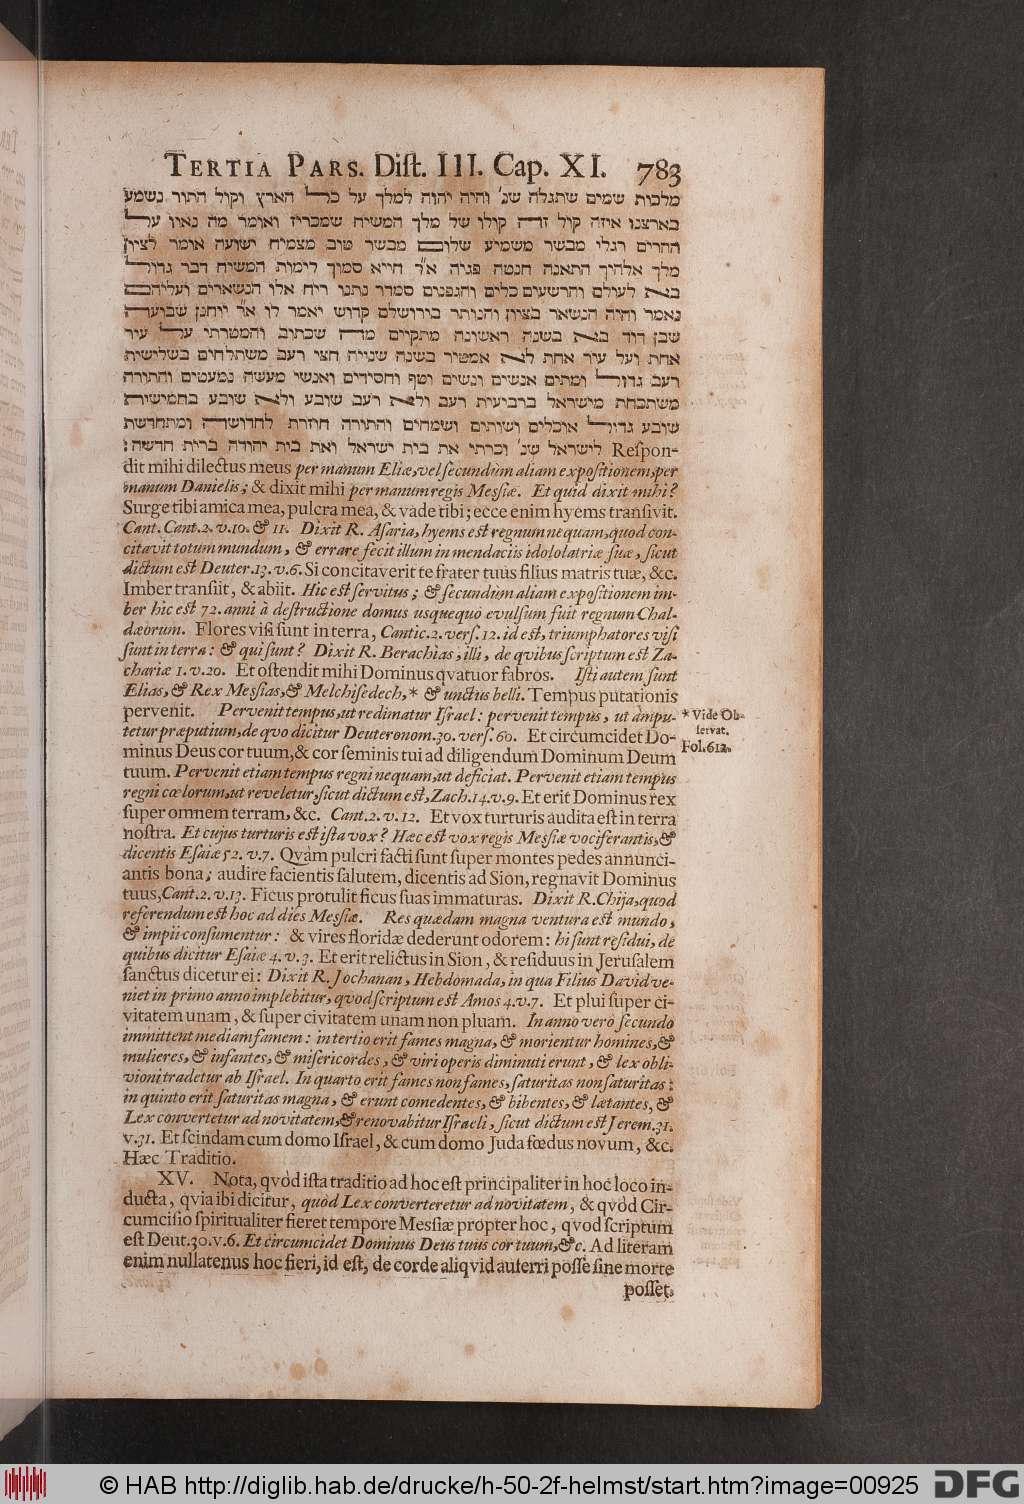 TERTIA PARS. Dist. III. Cap. XI. 783
מלכות שמים שתגלה שנ' והיה יהוה למלך על כל הארץ וקול התור נשמע
בארצנו איזה קול זה קולו של מלך המשיח שמכריז ואומר מה נאוו על
ההרים רגלי מבשר משמיע שלום מבשר טוב מצמיח ישועה אומר לציון
מלך אלהיך התאנה חנטה פגיה א"ר חייא סמוך לימות המשיח דבר גדול
בא לעולם והרשעים כלים והגפנים סמדר נתנו ריח אלו הנשארים ועליהם
נאמר והיה הנשאר בציון והנותר בירושלם קדוש יאמר לו א"ר יוחנן שבועה
שבן דוד בא בשנה ראשונה מתקיים מה שכתוב והמטרתי על עיר
אחת ועל עיר אחת לא אמטיר בשנה שנייה חצי רעב משתלחים בשלישית
רעב גדול ומתים אנשים ונשים וטף וחסידים ואנשי מעשה נמעטים והתורה
משתכחת מישראל ברביעית רעב ולא רעב שובע ולא שובע בחמישית
שובע גדול אוכלים ושותים ושמחים והתורה חוזרת לחדושה ומתחדשת
לישראל שנ' וכרתי את בית ישראל ואת בית יהודה ברית חדשה: Respon-
dit mihi dilectus meus per manum Eliæ, vel secundùm aliam expositionem, per
manum Danielis; & dixit mihi per manum regis Messiæ. Et quid dixit mihi?
Surge tibi amica mea, pulcra mea, & vade tibi; ecce enim hyems transivit.
Cant. Cant. 2. v. 10. & 11. Dixit R. Asaria, hyems est regnum nequam, quod con-
citavit totum mundum, & errare fecit illum in mendaciis idololatriæ suæ, sicut
dictum est Deuter. 13. v. 6. Si concitaverit te frater tuus filius matris tuæ, &c.
Imber transiit, & abiit. Hic est servitus; & secundùm aliam expositionem im-
ber hic est 72. anni à destructione domus usquequò evulsum fuit regnum Chal-
dæorum. Flores visi sunt in terra, Cantic. 2. vers. 12. id est, triumphatores visi
sunt in terra: & qui sunt? Dixit R. Berachias, illi, de qvibus scriptum est Za-
chariæ 1. v. 20. Et ostendit mihi Dominus qvatuor fabros. Isti autem sunt
Elias, & Rex Messias, & Melchisedech, * & unctus belli. Tempus putationis
pervenit. Pervenit tempus, ut redimatur Israel: pervenit tempus, ut ampu-
tetur præputium, de qvo dicitur Deuteronom. 30. vers. 60. Et circumcidet Do-
minus Deus cor tuum, & cor seminis tui ad diligendum Dominum Deum
tuum. Pervenit etiam tempus regni nequam, ut deficiat. Pervenit etiam tempus
regni cœlorum, ut reveletur, sicut dictum est, Zach. 14. v. 9. Et erit Dominus rex
super omnem terram, &c. Cant. 2. v. 12. Et vox turturis audita est in terra
nostra. Et cujus turturis est ista vox? Hæc est vox regis Messiæ vociferantis, &
dicentis Esaiæ 52. v. 7. Qvàm pulcri facti sunt super montes pedes annunci-
antis bona; audire facientis salutem, dicentis ad Sion, regnavit Dominus
tuus, Cant. 2. v. 13. Ficus protulit ficus suas immaturas. Dixit R. Chija, quod
referendum est hoc ad dies Messiæ. Res quædam magna ventura est mundo,
& impii consumentur: & vires floridæ dederunt odorem: hi sunt residui, de
quibus dicitur Esaiæ 4. v. 3. Et erit relictus in Sion, & residuus in Jerusalem
sanctus dicetur ei: Dixit R. Jochanan, Hebdomada, in qua Filius David ve-
niet in primo anno implebitur, qvod scriptum est Amos 4. v. 7. Et plui super ci-
vitatem unam, & super civitatem unam non pluam. In anno verò secundo
immittent mediam famem: in tertio erit fames magna, & morientur homines, &
mulieres, & infantes, & misericordes, & viri operis diminuti erunt, & lex obli-
vioni tradetur ab Israel. In quarto erit fames non fames, saturitas non saturitas:
in quinto erit saturitas magna, & erunt comedentes, & bibentes, & lætantes, &
Lex convertetur ad novitatem, & renovabitur Israeli, sicut dictum est Jerem. 31.
v. 31. Et scindam cum domo Israel, & cum domo Juda fœdus novum, &c.
Hæc Traditio.
* Vide Ob-
servat.
Fol. 612.
XV. Nota, qvòd ista traditio ad hoc est principaliter in hoc loco in-
ducta, qvia ibi dicitur, quòd Lex converteretur ad novitatem, & qvòd Cir-
cumcisio spiritualiter fieret tempore Messiæ propter hoc, qvod scriptum
est Deut. 30. v. 6. Et circumcidet Dominus Deus tuus cor tuum, &c. Ad literam
enim nullatenus hoc fieri, id est, de corde aliqvid auferri posse sine morte
posset.
© HAB http://diglib.hab.de/drucke/h-50-2f-helmst/start.htm?image=00925 DFG